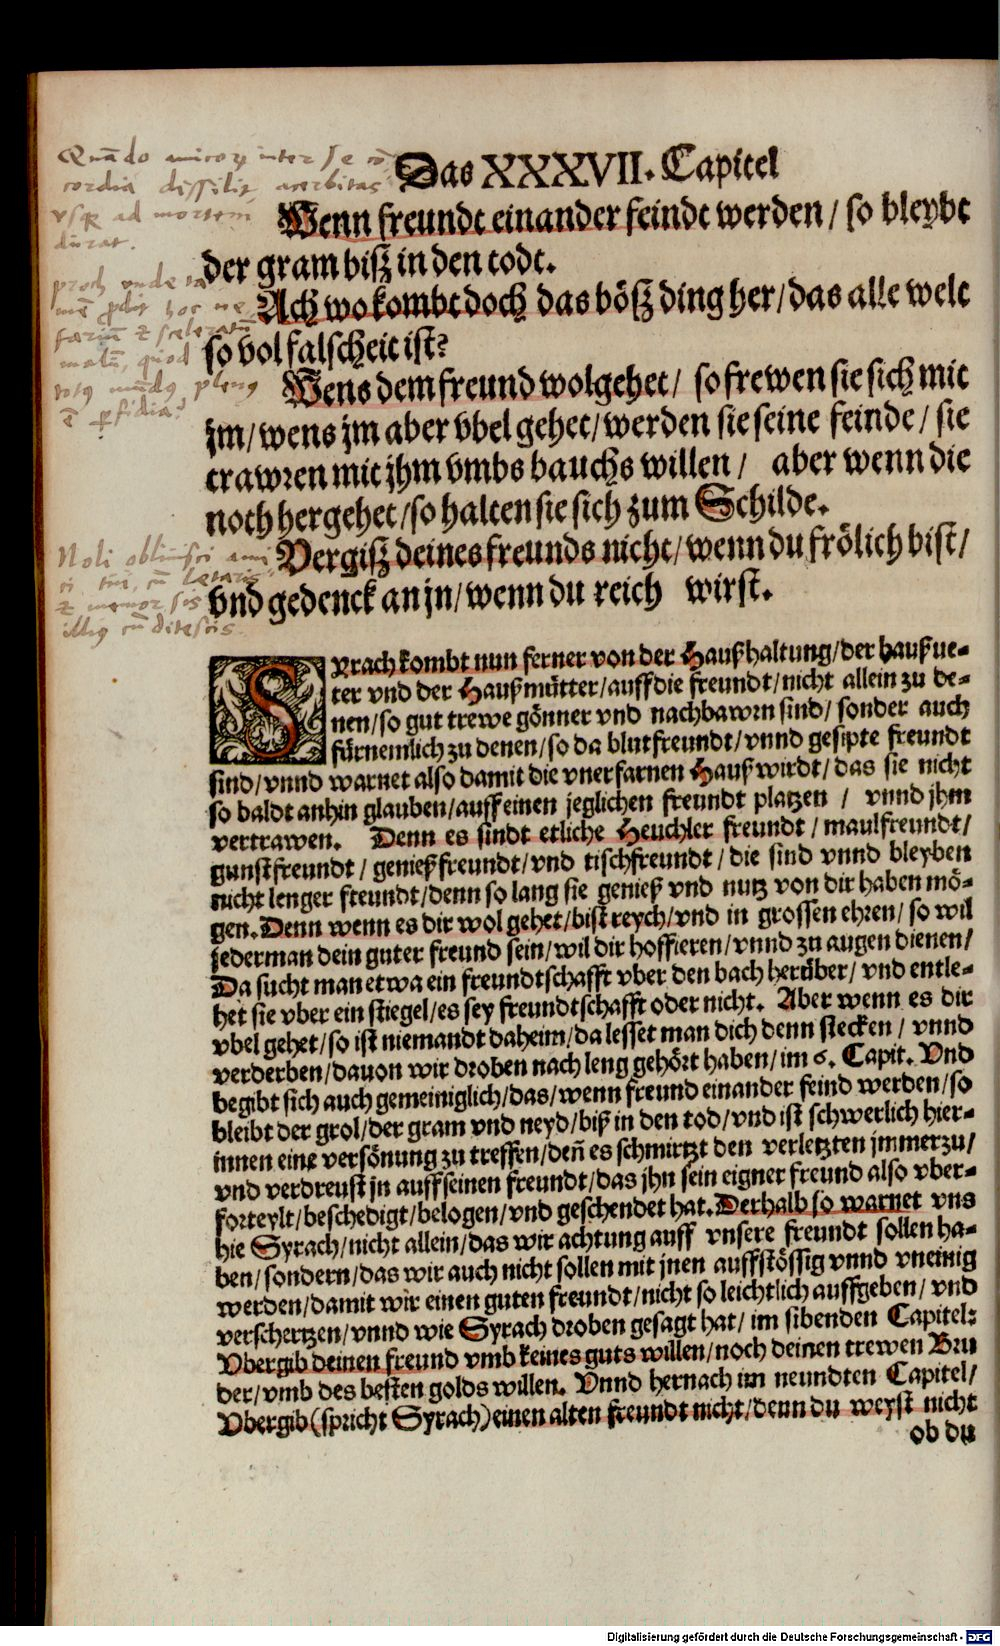 Das XXXVII. Capitel
Wenn freundt einander feindt werden / so bleybt
der gram bisz in den todt.
Ach wo kombt doch das bösz ding her / das alle welt
so vol falscheit ist?
Wens dem freund wolgehet / so frewen sie sich mit
jm / wens jm aber vbel gehet / werden sie seine feinde / sie
trawren mit jhm vmbs bauchs willen / aber wenn die
noth hergehet / so halten sie sich zum Schilde.
Vergisz deines freunds nicht / wenn du frölich bist /
vnd gedenck an jn / wenn du reich wirst.
Quādo amicorū inter se cō
cordia dissilit, acerbitas
vsq ad mortem
durat.
proch unde
hoc ne
farium & sceleratū
malū, quod
totus mūdus plenus
ē perfidia?
Noli obliuisci ami
ci tui, cū letaris
& memor sis
illius cū ditescis.
SYrach kombt nun ferner von der Haußhaltung / der haußue-
ter vnd der Haußmütter / auff die freundt / nicht allein zu de-
nen / so gut trewe gönner vnd nachbawrn sind / sonder auch
fürnemlich zu denen / so da blutfreundt / vnnd gesipte freundt
sind / vnnd warnet also damit die vnerfarnen Haußwirdt / das sie nicht
so baldt anhin glauben / auff einen jeglichen freundt platzen / vnnd jhm
vertrawen. Denn es sindt etliche Heuchler freundt / maulfreundt /
gunstfreundt / genießfreundt / vnd tischfreundt / die sind vnnd bleyben
nicht lenger freundt / denn so lang sie genieß vnd nutz von dir haben mö-
gen. Denn wenn es dir wol gehet / bist reych / vnd in grossen ehren / so wil
jederman dein guter freund sein / wil dir hoffieren / vnnd zu augen dienen /
Da sucht man etwa ein freundtschafft vber den bach herüber / vnd entle-
het sie vber ein stiegel / es sey freundtschafft oder nicht. Aber wenn es dir
vbel gehet / so ist niemandt daheim / da lesset man dich denn stecken / vnnd
verderben / dauon wir droben nach leng gehört haben / im 6. Capit. Vnd
begibt sich auch gemeiniglich / das / wenn freund einander feind werden / so
bleibt der grol / der gram vnd neyd / biß in den tod / vnd ist schwerlich hier-
innen eine versönung zu treffen / deñ es schmirtzt den verletzten jmmerzu /
vnd verdreust jn auff seinen freundt / das jhn sein eigner freund also vber-
forteylt / beschedigt / belogen / vnd geschendet hat. Derhalb so warnet vns
hie Syrach / nicht allein / das wir achtung auff vnsere freundt sollen ha-
ben / sondern / das wir auch nicht sollen mit jnen auffstössig vnnd vneinig
werden / damit wir einen guten freundt / nicht so leichtlich auffgeben / vnd
verschertzen / vnnd wie Syrach droben gesagt hat / im sibenden Capitel:
Vbergib deinen freund vmb keines guts willen / noch deinen trewen Bru
der / vmb des besten golds willen. Vnnd hernach im neundten Capitel /
Vbergib (spricht Syrach) einen alten freundt nicht / denn du weyst nicht
ob du
Digitalisierung gefördert durch die Deutsche Forschungsgemeinschaft - DFG